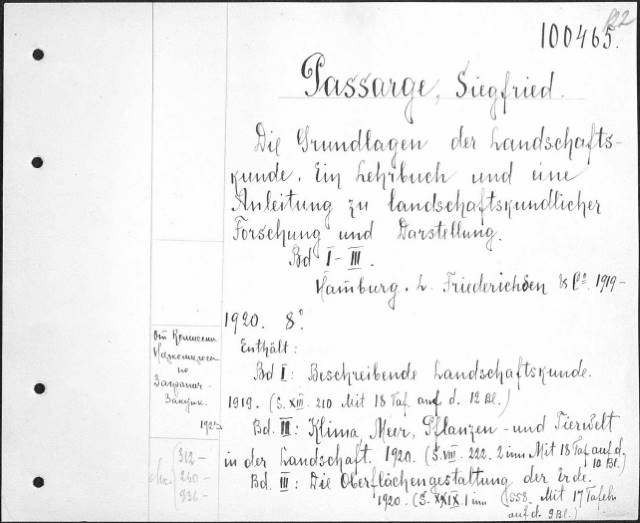 100465.
Passarge, Siegfried.
Die Grundlagen der Landschafts-
kunde. Ein Lehrbuch und eine
Anleitung zu landschaftskundlicher
Forschung und Darstellung.
Bd I-III.
Hamburg. L. Friederichsen & Co. 1919-
1920. 8°.
Enthält:
Bd I: Beschreibende Landschaftskunde.
1919. (S. XIII. 210 Mit 18 Taf. auf d. 12 Bl.)
Bd. II: Klima, Meer, Pflanzen- und Tierwelt
in der Landschaft. 1920. (S. VIII. 222. Mit 18 Taf auf d.
10 Bl.)
Bd. III: Die Oberflächengestaltung der Erde.
1920. (S. XXIX 558. Mit 17 Tafeln
auf d. 9 Bl.)
От Комиссии
по
Загранич.
Закупк.
192
312-
240-
936-